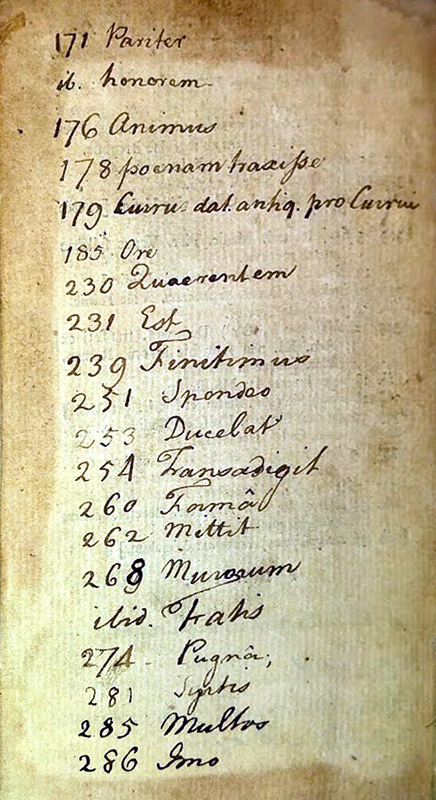 171 Pariter
ib. honorem
176 Animus
178 poenam traxisse
179 Curru dat. antiq. pro Currui
185 Ore
230 Quaerentem
231 Est
239 Finitimus
251 Spondeo
253 Ducebat
254 Transadigit
260 Formâ
262 Mittit
268 Murorum
ibid. Fatis
274 Pugnâ;
281 Syrtis
285 Multos
286 Imo